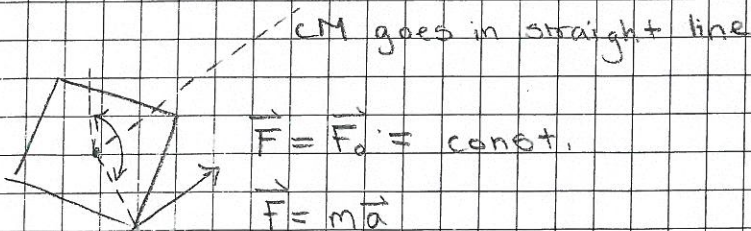 CM goes in straight line
F⃗ = F⃗₀ = const.
F⃗ = ma⃗